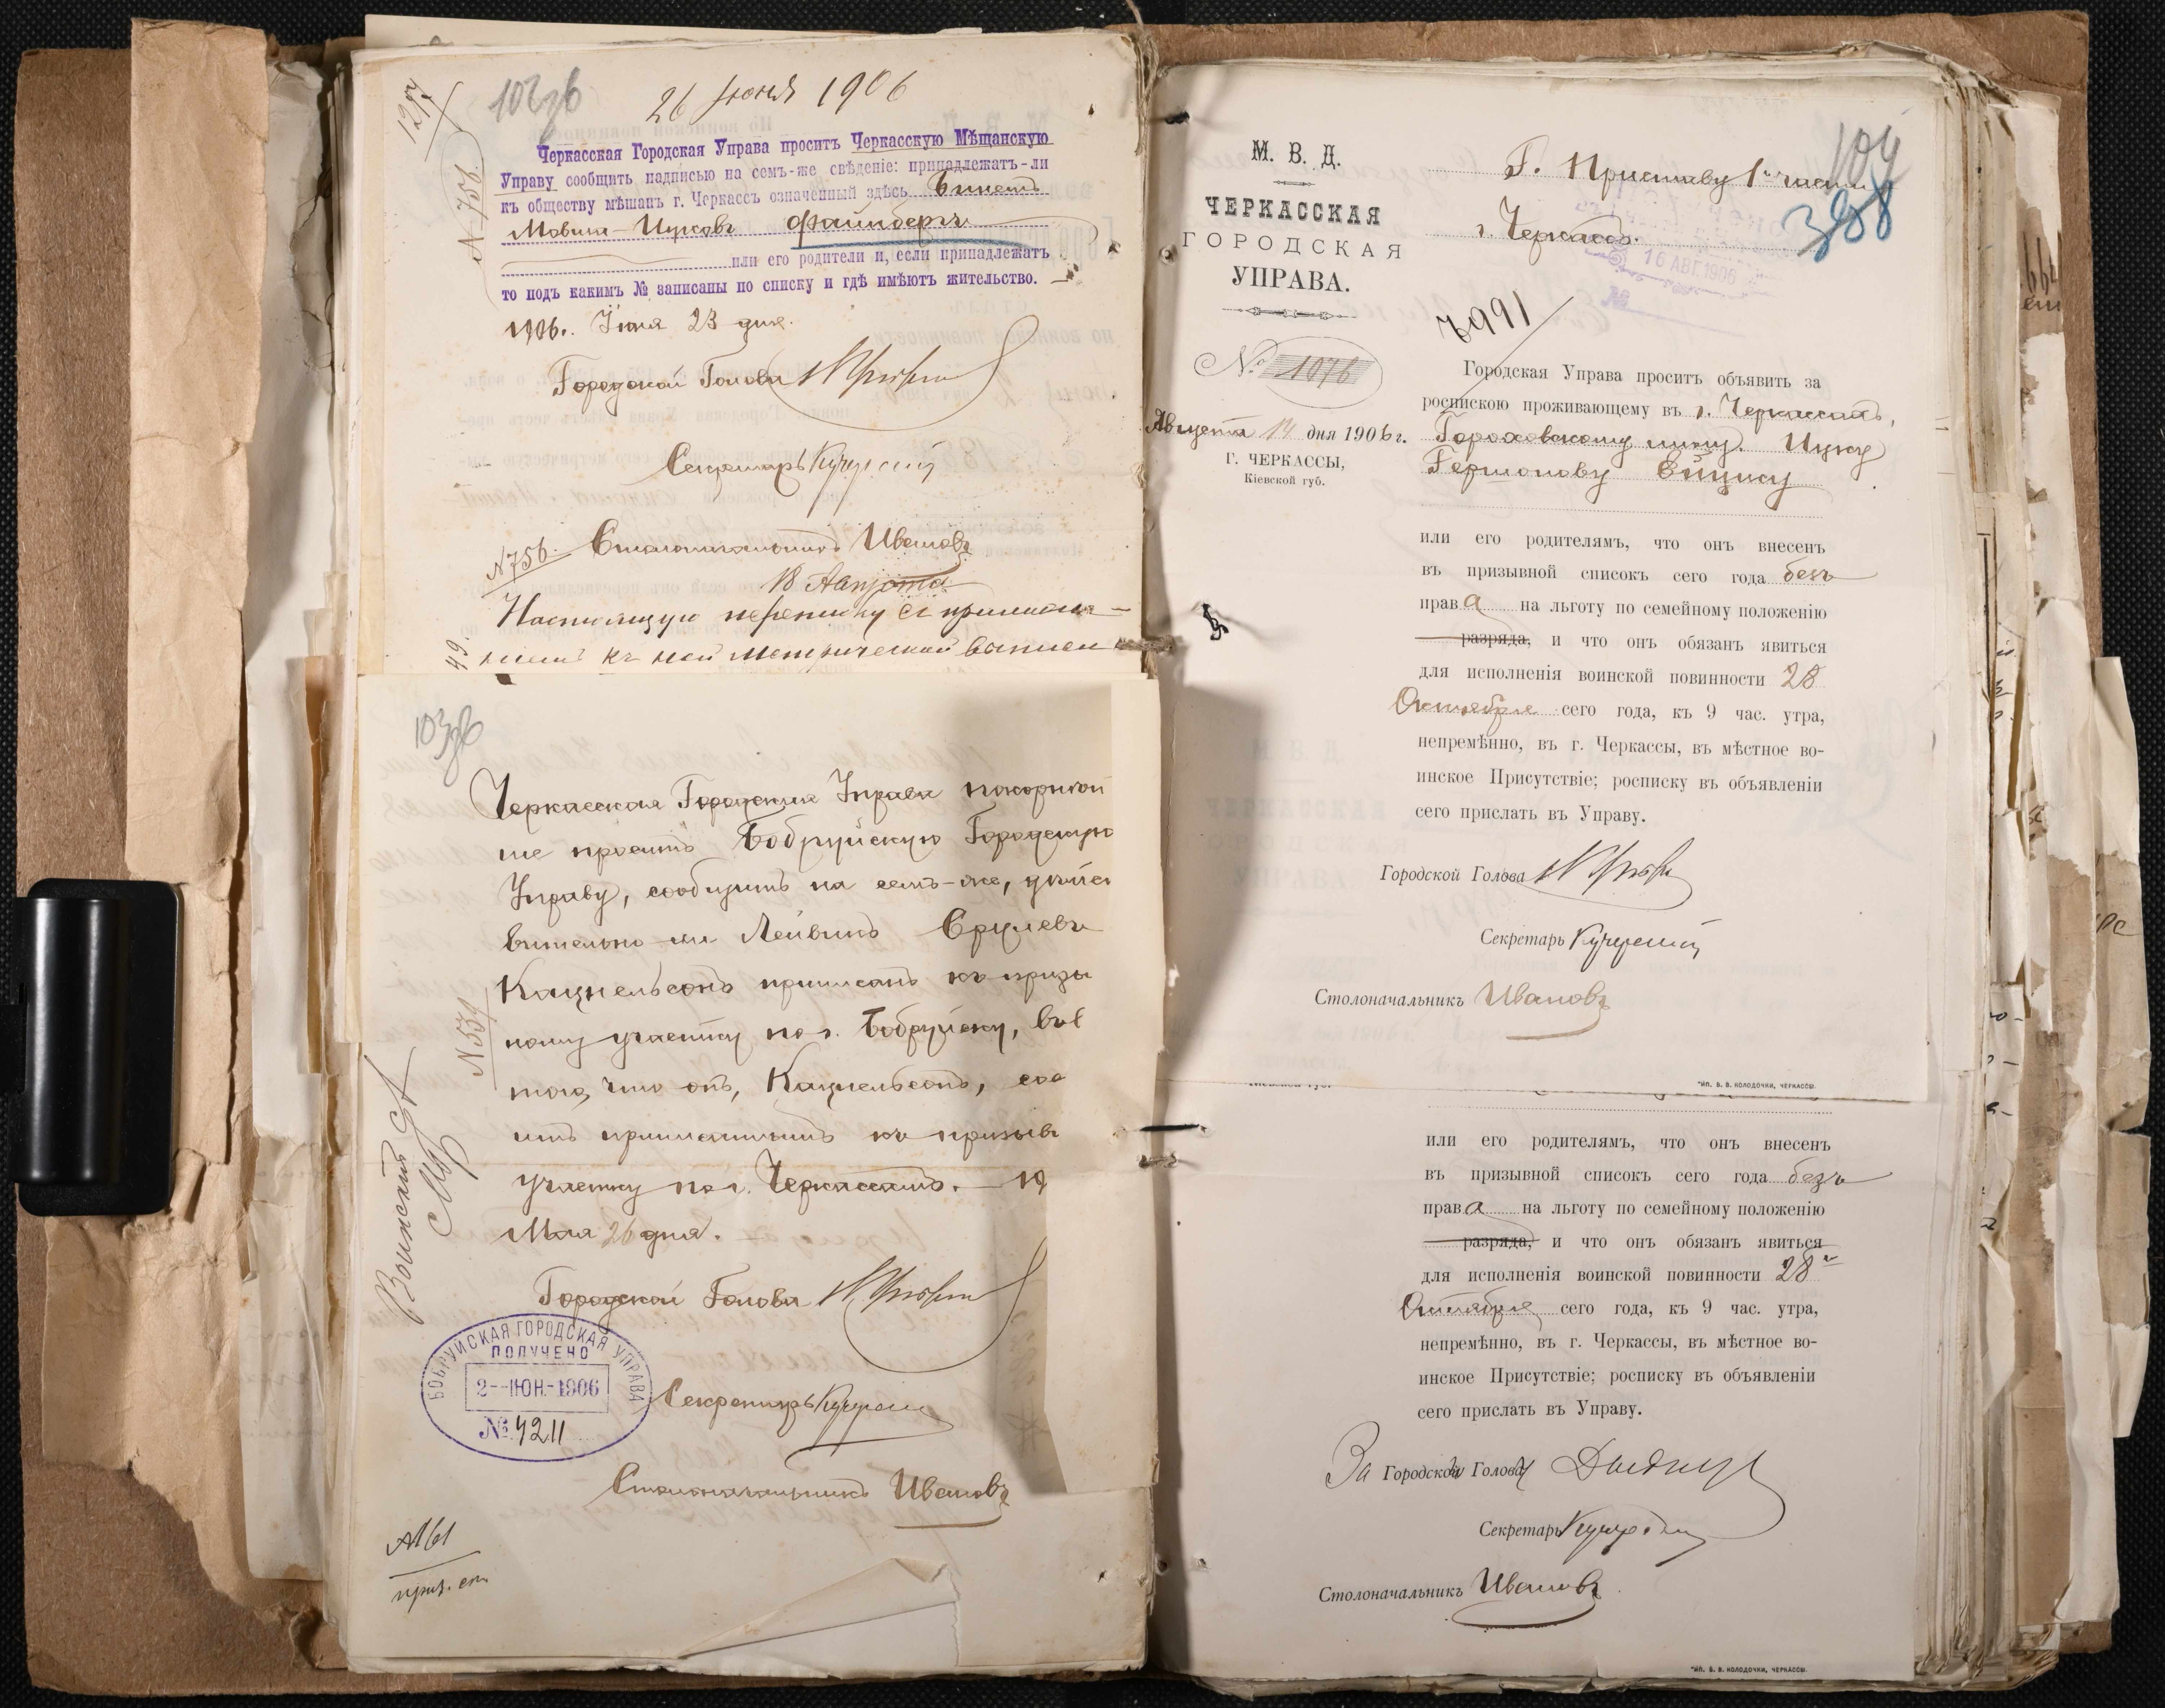 1257
102об
26 Июня 1906
Черкасская Городская Управа проситъ Черкасскую Мѣщанскую
Управу сообщить надписью на семъ-же свѣденіе: принадлежатъ-ли
къ обществу мѣщанъ г. Черкассъ означенный здѣсь
Мовша-Ицковъ Файнбергъ
или его родители и, если принадлежатъ
то подъ какимъ № записаны по списку и гдѣ имѣютъ жительство.
N 756.
1906. Іюня 23 дня.
Городской Голова
Секретарь
Столоначальникъ Ивановъ
N 756.
18 Августа
Настоящую переписку съ
къ ней метрической
49.
103об
Черкасская Городская Управа покорнѣй
ше проситъ Бобруйскую Городскую
Управу, сообщить на семъ-же, дѣйст
вительно-ли Лейвикъ Сролевъ
Кацнельсонъ приписанъ къ призы
ному участку по г. Бобруйску, въ
того, что онъ, Кацнельсонъ, сос
итъ приписаннымъ къ призыв
участку по г. Черкассамъ. 19
Мая 26 дня.
N 531
Городской Голова
БОБРУЙСКАЯ ГОРОДСКАЯ УПРАВА
ПОЛУЧЕНО
2-ИЮН-1906
№ 4211
Секретарь
Столоначальникъ Ивановъ
Воинскій Ст
№ 61
приз. сп.
М. В. Д.
ЧЕРКАССКАЯ
ГОРОДСКАЯ
УПРАВА.
№ 1076
Августа 14 дня 1906 г.
Г. ЧЕРКАССЫ,
Кіевской губ.
104
308
Г. Приставу 1й части
г. Черкассъ.
16 АВГ 1906
№
7991
Городская Управа проситъ объявить за
роспискою проживающему въ г. Черкассахъ,
Гороховскому мѣщ. Ицку
Гершонову
или его родителямъ, что онъ внесенъ
въ призывной списокъ сего года безъ
права на льготу по семейному положенію
разряда, и что онъ обязанъ явиться
для исполненія воинской повинности 28
Октября сего года, къ 9 час. утра,
непремѣнно, въ г. Черкассы, въ мѣстное во-
инское Присутствіе; росписку въ объявленіи
сего прислать въ Управу.
Городской Голова
Секретарь
Столоначальникъ Ивановъ
ТИП. В. В. КОЛОДОЧКИ, ЧЕРКАССЫ.
или его родителямъ, что онъ внесенъ
въ призывной списокъ сего года безъ
права на льготу по семейному положенію
разряда, и что онъ обязанъ явиться
для исполненія воинской повинности 28го
Октября сего года, къ 9 час. утра,
непремѣнно, въ г. Черкассы, въ мѣстное во-
инское Присутствіе; росписку въ объявленіи
сего прислать въ Управу.
За Городского Голову
Секретарь
Столоначальникъ Ивановъ
ТИП. В. В. КОЛОДОЧКИ, ЧЕРКАССЫ.